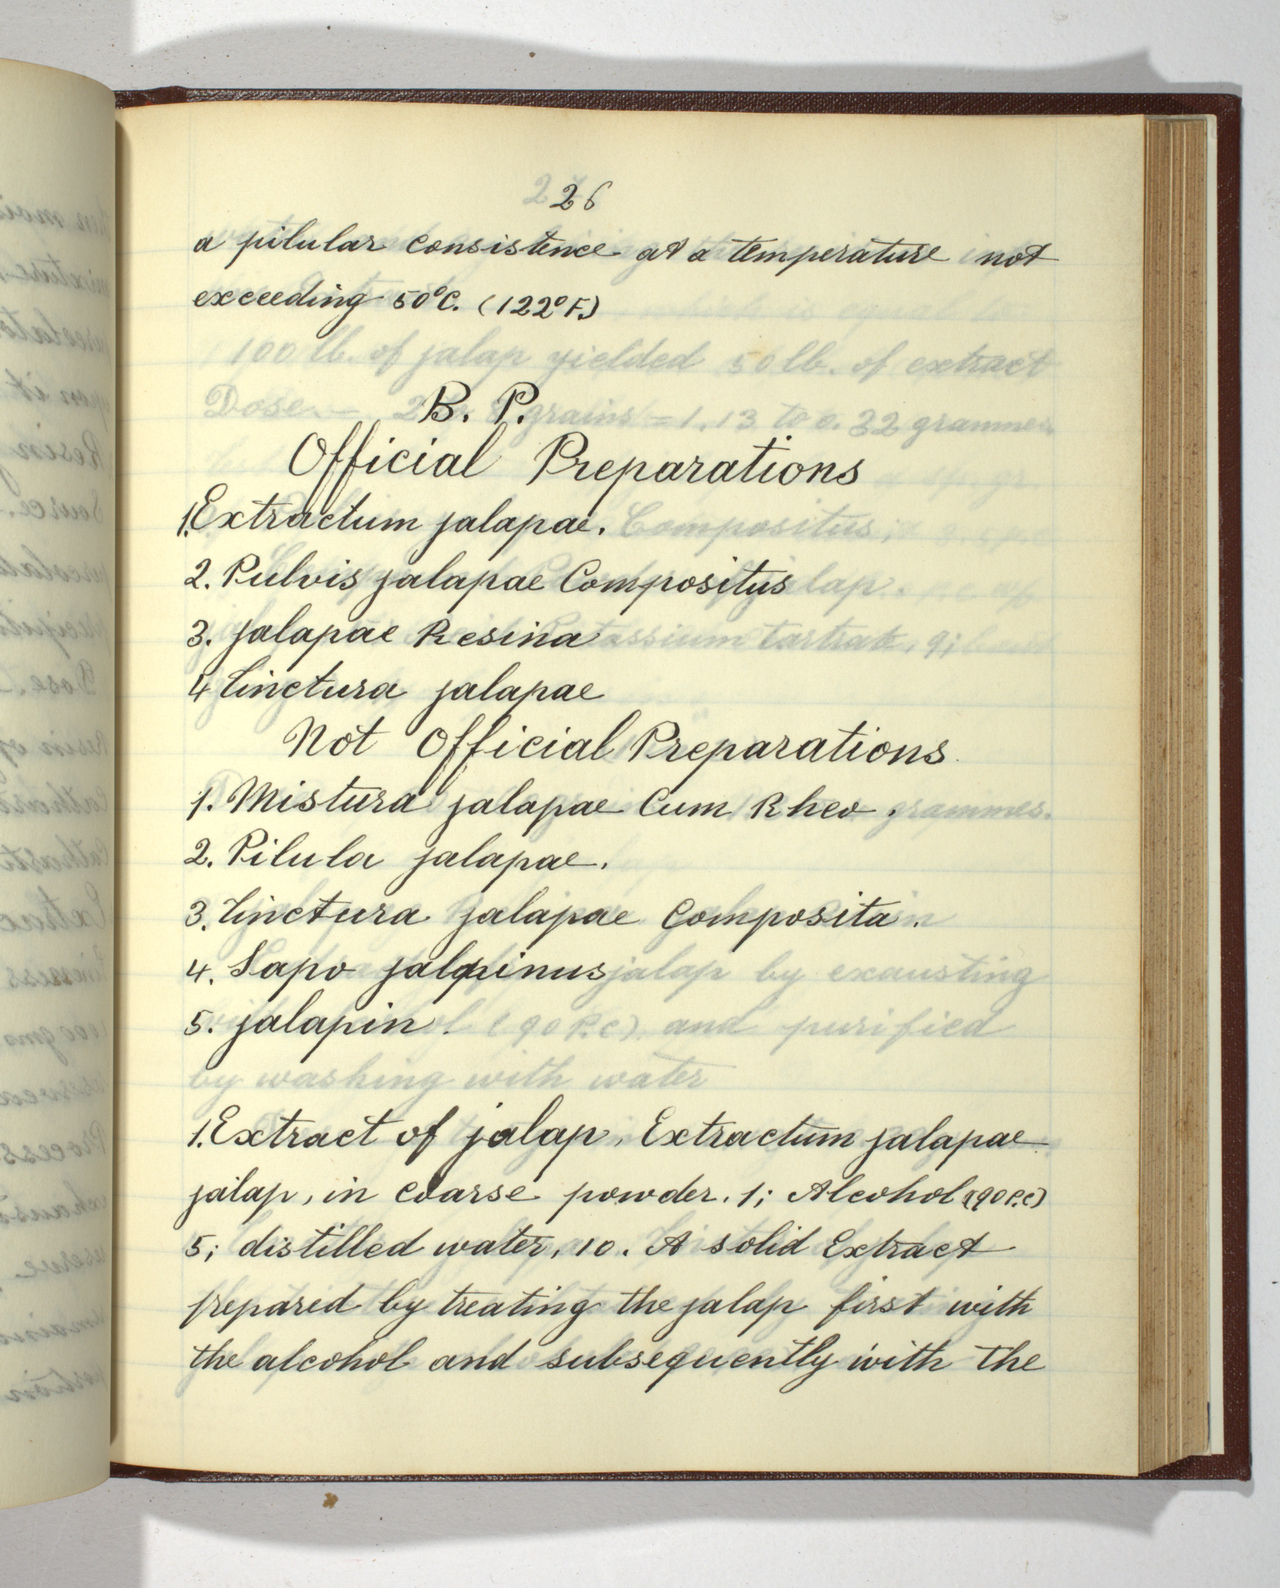 26
a pilular consistence at a temperature not
exceeding 50°C. (122°F.)
100 lb. of jalap yielded 50 lb. of extract
B. P.
Official Preparations
1. Extractum jalapae.
2. Pulvis jalapae Compositus
3. jalapae Resina
4 Tinctura jalapae
Not Official Preparations
1. Mistura jalapae Cum Rheo.
2. Pilula jalapae.
3. Tinctura jalapae Composita.
4. Sapo jalapinus
5. jalapin.
by washing with water
1. Extract of jalap. Extractum jalapae
jalap, in coarse powder, 1; Alcohol (90 P.C)
5; distilled water, 10. A solid Extract
prepared by treating the jalap first with
the alcohol and subsequently with the